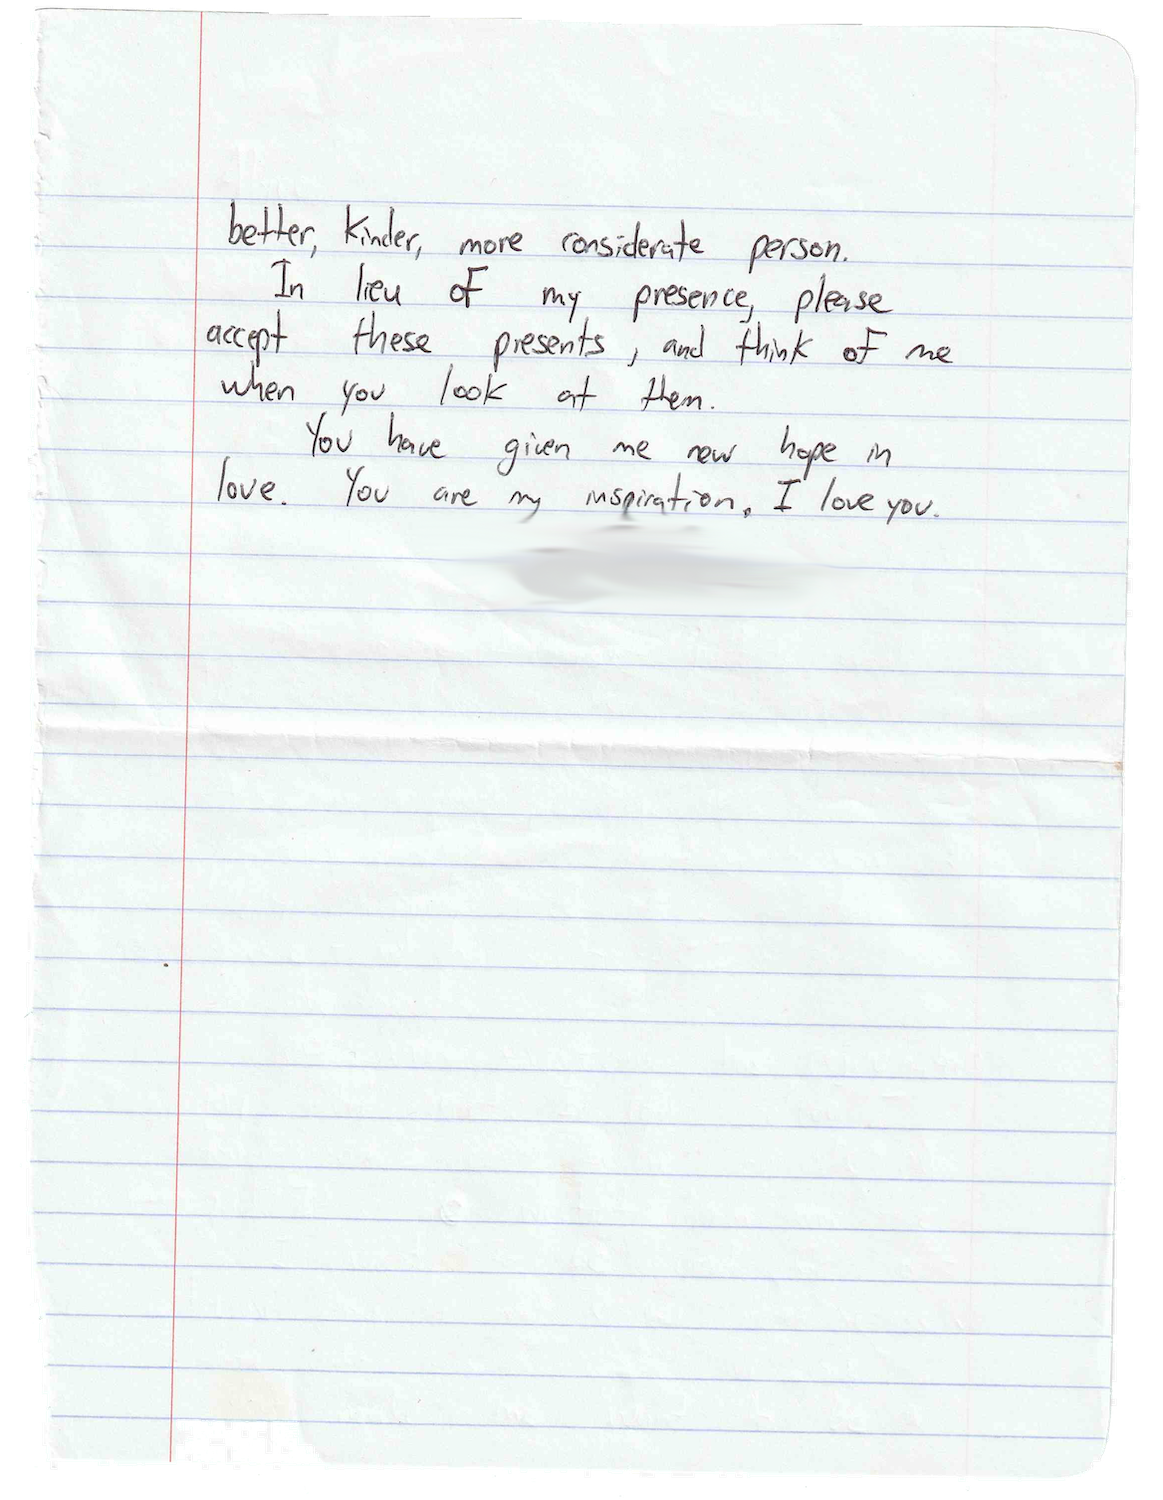 better, kinder, more considerate person.
In lieu of my presence, please
accept these presents, and think of me
when you look at them.
You have given me new hope in
love. You are my inspiration. I love you.